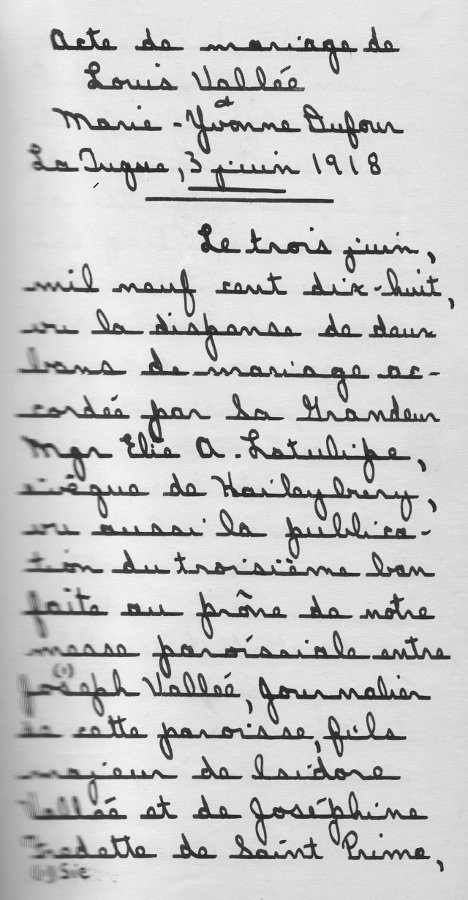 Acte de mariage de
Louis Vallée
et
Marie-Yvonne Dufour
La Tuque, 3 juin 1918
Le trois juin,
mil neuf cent dix-huit,
vu la dispense de deux
bans de mariage ac-
cordée par Sa Grandeur
Mgr Elie A. Latulipe,
évêque de Haileybury,
vu aussi la publica-
tion du troisième ban
faite au prône de notre
messe paroissiale entre
(1)
Joseph Vallée, journalier
de cette paroisse, fils
majeur de Isidore
Vallée et de Joséphine
Tradette de Saint Prime,
(1) Sic